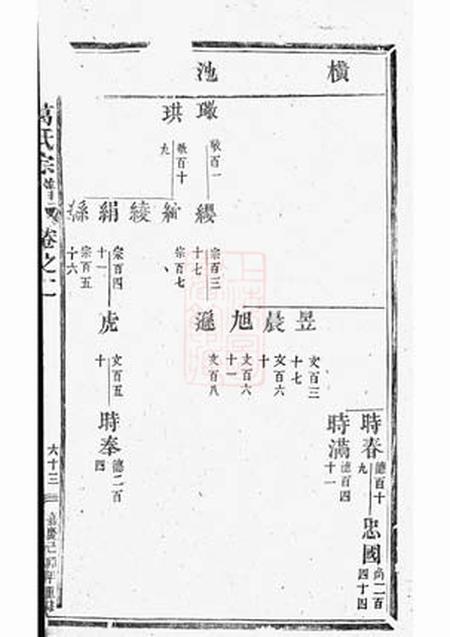 橫池
璥
敬百一
珙
敬百十九
纓
宗百三十七
䋫
宗百七
綾
絹
宗百四十一
縣
宗百五十六
昱
文百三十七
晨
文百六十
旭
文百六十一
遜
文百八
虎
文百五十
時春
德百十九
時滿
德百四十一
時奉
德二百四
忠國
尚二百四十四
葛氏宗譜
卷之二
六十三
嘉慶己卯年重修